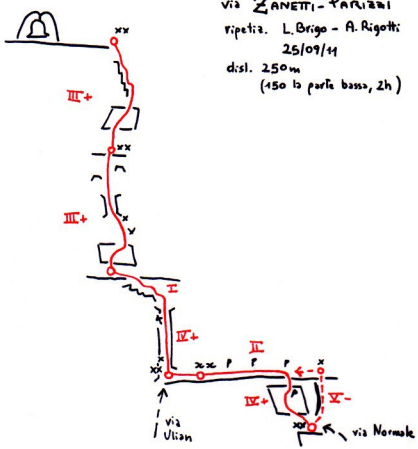 via ZANETTI - PARIZZI
ripetiz. L. Brigo - A. Rigotti
25/09/11
disl. 250m
(150 la parte bassa, 2h)
xx
III+
xx
III+
x
I
x
IV+
xx
xx
P
P
II
P
x
P
IV+
V-
xx
via
Ulian
via Normale